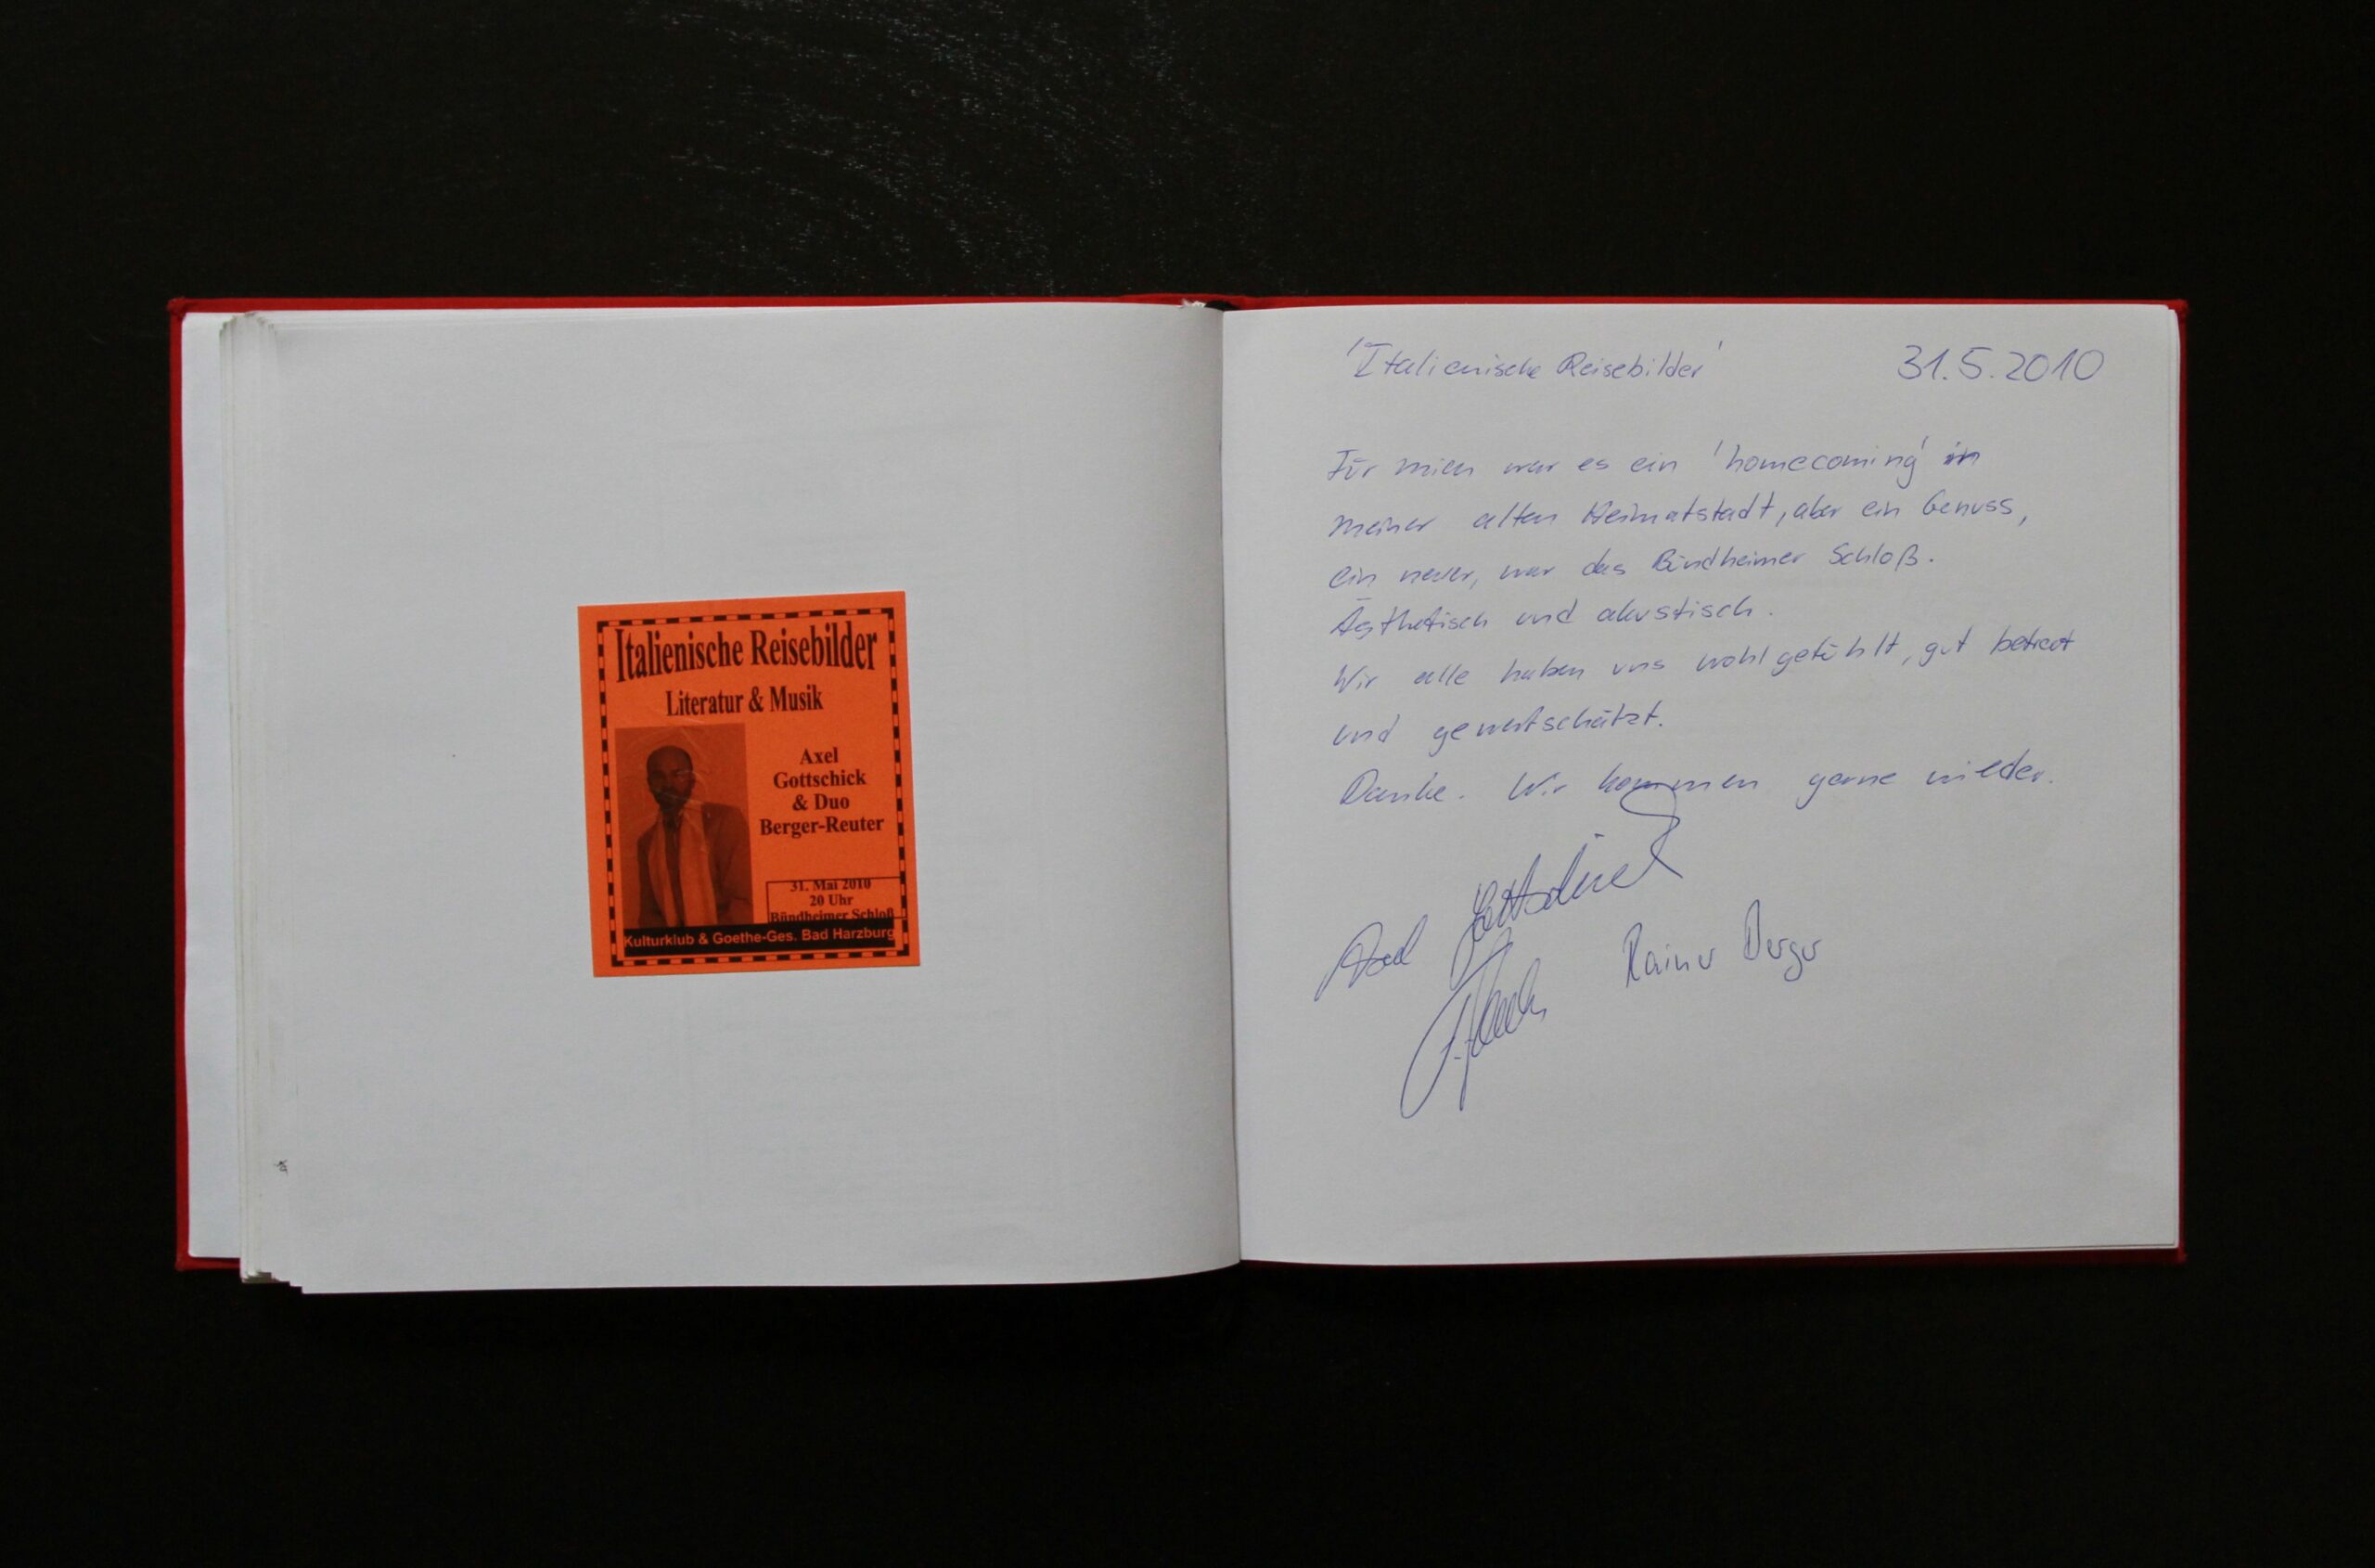 Italienische Reisebilder
Literatur & Musik
Axel
Gottschick
& Duo
Berger-Reuter
31. Mai 2010
20 Uhr
Bündheimer Schloß
Kulturklub & Goethe-Ges. Bad Harzburg
'Italienische Reisebilder' 31.5.2010
Für mich war es ein 'homecoming' in
meiner alten Heimatstadt, aber ein Genuss,
ein neuer, war das Bündheimer Schloß.
Ästhetisch und akustisch.
Wir alle haben uns wohlgefühlt, gut betreut
und gewertschätzt.
Danke. Wir kommen gerne wieder.
Axel Gottschick
Rainer Berger